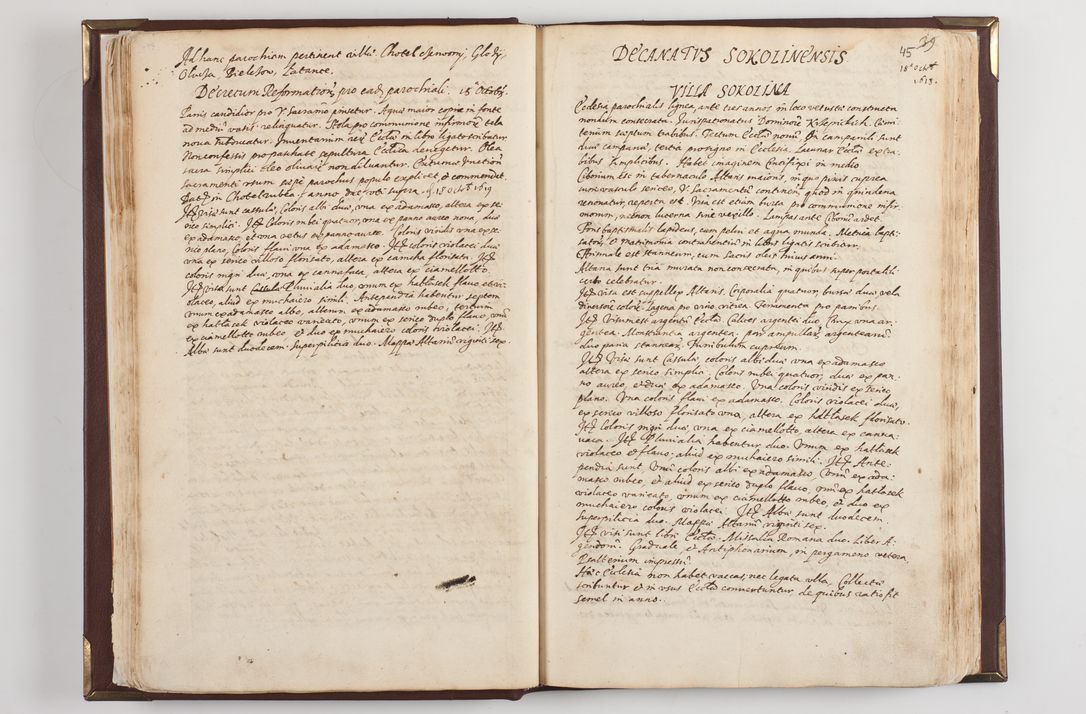 Ad hanc parochiam pertinent villæ Chotel czerwony, Glodzi,
Olussa, Biełesow, Łatance.
Decretum Reformationis pro ead. parochiali. 18 Octobr.
Panis candidior pro V. Sacramento pinsetur. Aquæ maior copia in fonte
ad medium vasis relinquatur. Stola pro communione infirmorum tela
nova subducatur. Inventarium rerum Ecclæ in libro ligato scribatur
Nonconfessis pro paschate sepultura Ecclica denegetur. Olea
sacra simplici oleo olivæ non diluantur. Catumenorum
Sacramenti usum sæpe parochus populo explicet et commendet.
Dat. in Chotel rubea anno die ut supra 18 Octob. 1618
Itē visæ sunt casulæ, Coloris albi duæ, una ex adamasco, altera ex se-
rico simplici. Itē Coloris rubei quatuor, una ex panno aureo nova, duæ
ex adamasco et una vetus ex panno aureo. Coloris viridis una ex se-
rico plano, Coloris flavi una ex adamasco. Itē coloris violacei duæ
una ex serico villoso florisato, altera ex camcha florisata. Itē
coloris nigri duæ, una ex cannafaca, altera ex ciamellotto.
Itē visa sunt Pluvialia duo, unum ex hatłasek flavo et vi-
olaceo, aliud ex muchaiero simili. Antependia habentur septem
unum ex adamasco albo, alterum ex adamasco rubeo, tertium
ex hatłasek violaceo variato, unum ex serico duplo flavo, unum
ex ciamellotto rubeo et duo ex muchaiero coloris violacei. Itē
Albæ sunt duodecem. Superpilicia duo. Mappæ Altarium viginti sex.
45 39
18 Octob.
1618.
DECANATVS SOKOLINENSIS
VILLA SOKOLINA
Ecclesia parochialis lignea, ante tres annos in loco vetustæ constructa
nondum consecrata Iurispatronatus Dominorum Koseprickich. Coemi-
terium sæptum trabibus. Tectum Ecclæ novum. In campanili sunt
duæ campanæ, tertia pro signo in Ecclesia. Laquear Ecclæ ex tra-
bibus simplicibus. Habet imaginem Crucifixi in medio
Ciborium est in tabernaculo Altaris maioris, in quo pixis cuprea
cum vasculo sericeo, V. Sacramentum continens quod in quindena
renovatur, reposita est. Visa est etiam bursa pro communione infir-
morum, necnon lucerna sine vexillo. Lampas ante Ciborium ardet.
Fons baptismalis lapideus, cum pelvi et aqua munda. Metrica bapti-
satorum, et matrimonia contrahentium in libris ligatis scribuntur.
Chrismale est stanneum, cum sacris oleis huius anni.
Altaria sunt tria murata non consecrata, in quibus super portatili
celebratur.
Itē visa est supellex Altaris. Corporalia quatuor, bursæ duæ, vela
diversorum colorum. Lagena pro vino vitrea. Ferramenta pro panibus.
Itē Visum est argentum Ecclæ. Calices argentei duo, Crux una ar-
gentea. Monstrancia argentea. par ampullarum argentearum.
duo paria stannearum. Thuribulum cupreum.
Itē Visæ sunt Casulæ, coloris albi duæ una ex adamasco
altera ex serico simplici. Coloris rubei quatuor, duæ ex pan-
no aureo, et duæ ex adamasco. Una coloris viridis ex serico
plano. Una coloris flavi ex adamasco. Coloris violacei duæ,
ex serico villoso florisato una, altera ex hatłasek florisato.
Itē Coloris nigri duæ, una ex ciamellotto, altera ex canna-
vaca. Itē Pluvialia habentur duo. Unum ex hatłasek
violaceo et flavo, aliud ex muchaiero simili. Itē Ante-
pendia sunt, Unum coloris albi ex adamasco, Unum ex ada-
masco rubeo, et aliud ex serico duplo flavo, unum ex hatłasek
violaceo variato, unum ex ciamellotto rubeo, et duo ex
muchaiero coloris violacei. Itē Albæ sunt duodecem.
Superpilicia duo. Mappæ Altarium viginti sex.
Itē visi sunt libri Ecclæ. Missalia Romana duo. Liber A-
gendorum. Graduale et Antiphonarium in pergameno vetera,
Psalterium impressum.
Hæc Ecclesia non habet vaccas, nec legata ulla, Collectæ
scribuntur et in usus Ecclæ convertuntur de quibus ratio fit
semel in anno.